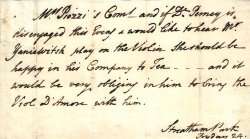 Mrs Piozzi's Comts and if Dr Burney is
disengaged this Eveng & would like to hear Mr
Janiewitch play on the Violin She should be
happy in his Company to Tea — and it
would be very obliging in him to bring the
Viol D'Amore with him.
Streatham Park
Tuesday 24.